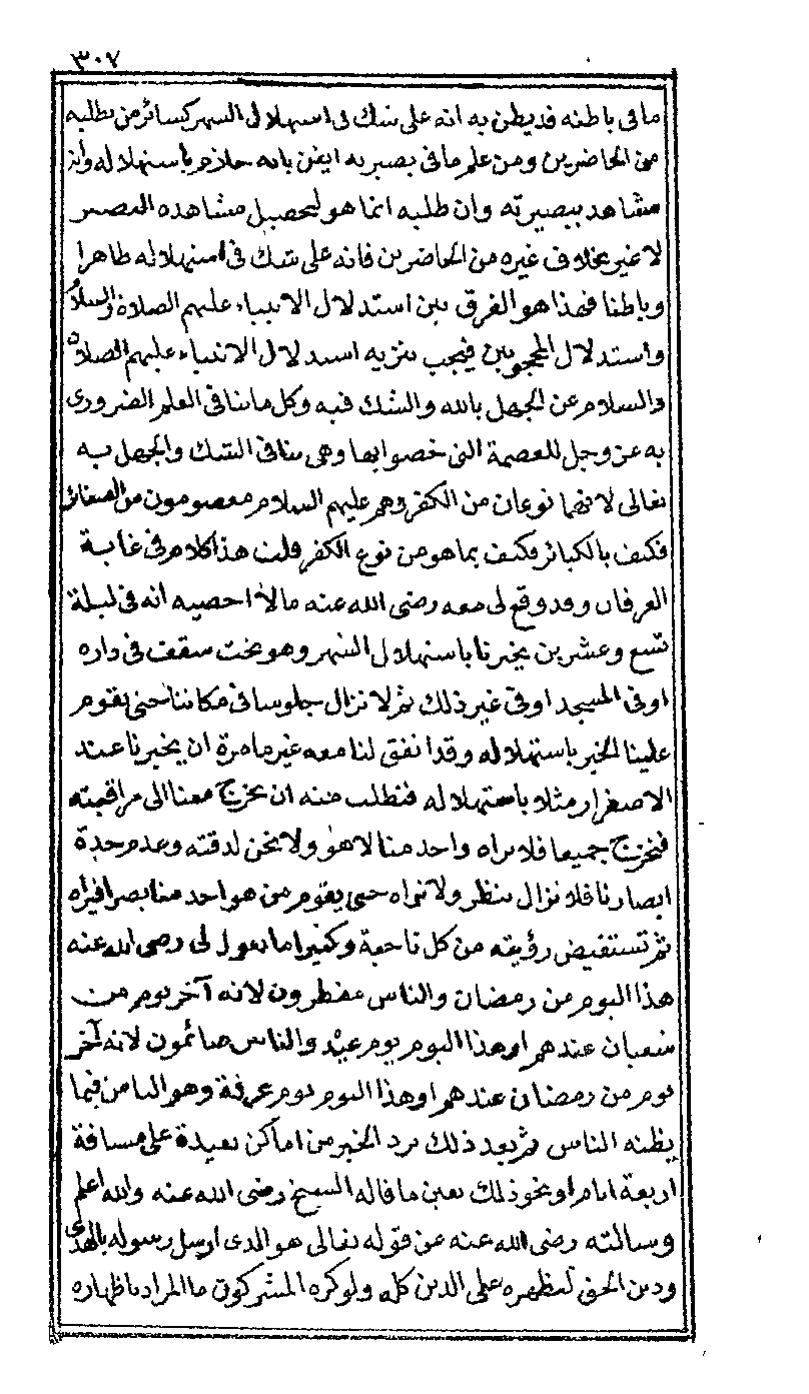 ٣٠٧
ما فى باطنه قد يظن به انه على شك فى استهلال الشهر كسائر من يطلبه
من الحاضرين ومن علم ما فى بصيرته ايقن بانه جازم باستهلاله وانه
مشاهد ببصيرته وان طلبه انما هو ليحصل مشاهدة البصر
لا غير بخلاف غيره من الحاضرين فانه على شك فى استهلاله ظاهرا
وباطنا فهذا هو الفرق بين استدلال الانبياء عليهم الصلاة والسلام
واستدلال المحجوبين فيجب تنزيه استدلال الانبياء عليهم الصلاة
والسلام عن الجهل بالله والشك فيه وكل ما ينافى العلم الضرورى
به عز وجل للعصمة التى خصوا بها وهى تنافى الشك والجهل به
تعالى لانهما نوعان من الكفر وهم عليهم السلام معصومون من الصغائر
فكيف بالكبائر فكيف بما هو من نوع الكفر قلت هذا كلام فى غاية
العرفان وقد وقع لى معه رضى الله عنه ما لا احصيه انه فى ليلة
تسع وعشرين يخبرنا باستهلال الشهر وهو تحت سقف فى داره
او فى المسجد او فى غير ذلك ثم لا نزال جلوسا فى مكاننا حتى يقوم
علينا الخبر باستهلاله وقد اتفق لنا معه غير ما مرة ان يخبرنا عند
الاصفرار مثلا باستهلاله فنطلب منه ان يخرج معنا الى مراقبته
فنخرج جميعا فلا يراه واحد منا لا هو ولا نحن لدقته وعدم حدة
ابصارنا فلا نزال ننظر ولا نراه حتى يقوم من هو احد منا بصرا فيراه
ثم تستفيض رؤيته من كل ناحية وكثيرا ما يقول لى رضى الله عنه
هذا اليوم من رمضان والناس مفطرون لانه آخر يوم من
شعبان عندهم او هذا اليوم يوم عيد والناس صائمون لانه آخر
يوم من رمضان عندهم او هذا اليوم يوم عرفة وهو الثامن فيما
يظنه الناس ثم بعد ذلك يرد الخبر من اماكن بعيدة على مسافة
اربعة ايام او نحو ذلك بعين ما قاله الشيخ رضى الله عنه والله اعلم
وسالته رضى الله عنه عن قوله تعالى هو الذى ارسل رسوله بالهدى
ودين الحق ليظهره على الدين كله ولو كره المشركون ما المراد باظهاره